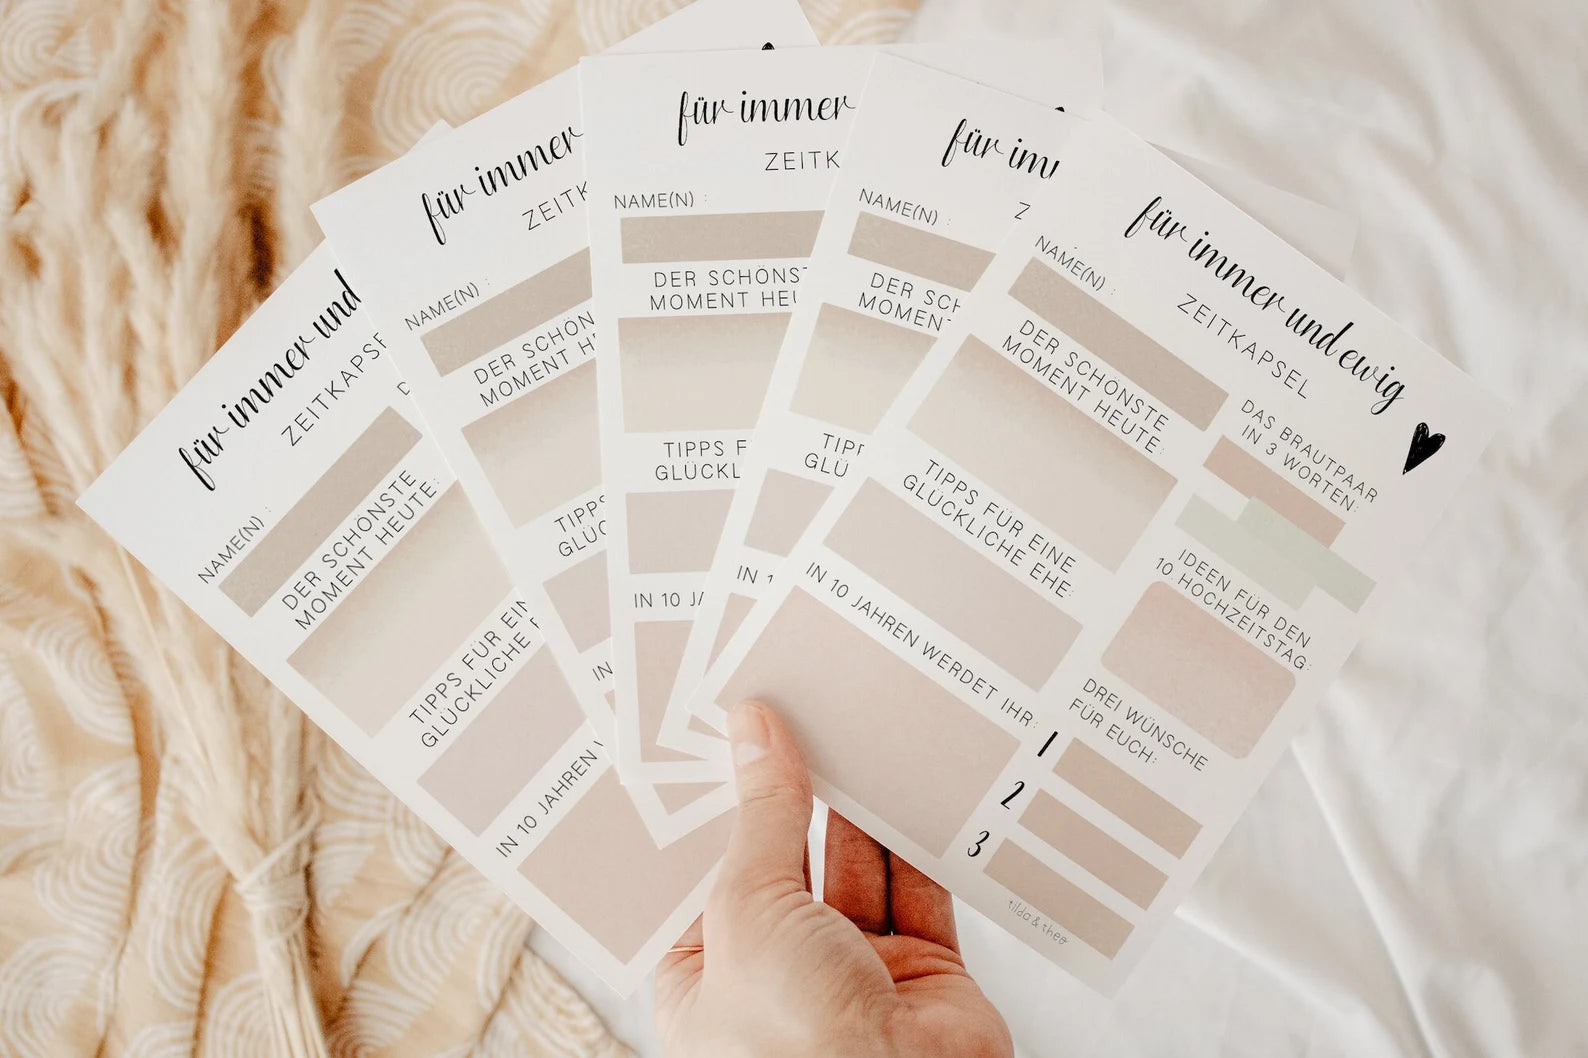 für immer und
ZEITKAPSE
NAME(N) :
DER SCHÖNSTE
MOMENT HEUTE:
TIPPS FÜR EIN
GLÜCKLICHE
IN 10 JAHREN
für immer
ZEITK
NAME(N) :
DER SCHÖN
MOMENT H
TIPPS
GLÜC
IN
für immer
ZEITK
NAME(N) :
DER SCHÖNST
MOMENT HEU
TIPPS F
GLÜCKL
IN 10 JA
für imm
Z
NAME(N) :
DER SCH
MOMENT
TIPP
GLÜ
IN 1
für immer und ewig
ZEITKAPSEL
NAME(N) :
DER SCHÖNSTE
MOMENT HEUTE:
TIPPS FÜR EINE
GLÜCKLICHE EHE:
IN 10 JAHREN WERDET IHR:
DAS BRAUTPAAR
IN 3 WORTEN:
IDEEN FÜR DEN
10. HOCHZEITSTAG:
DREI WÜNSCHE
FÜR EUCH:
1
2
3
tilda & theo